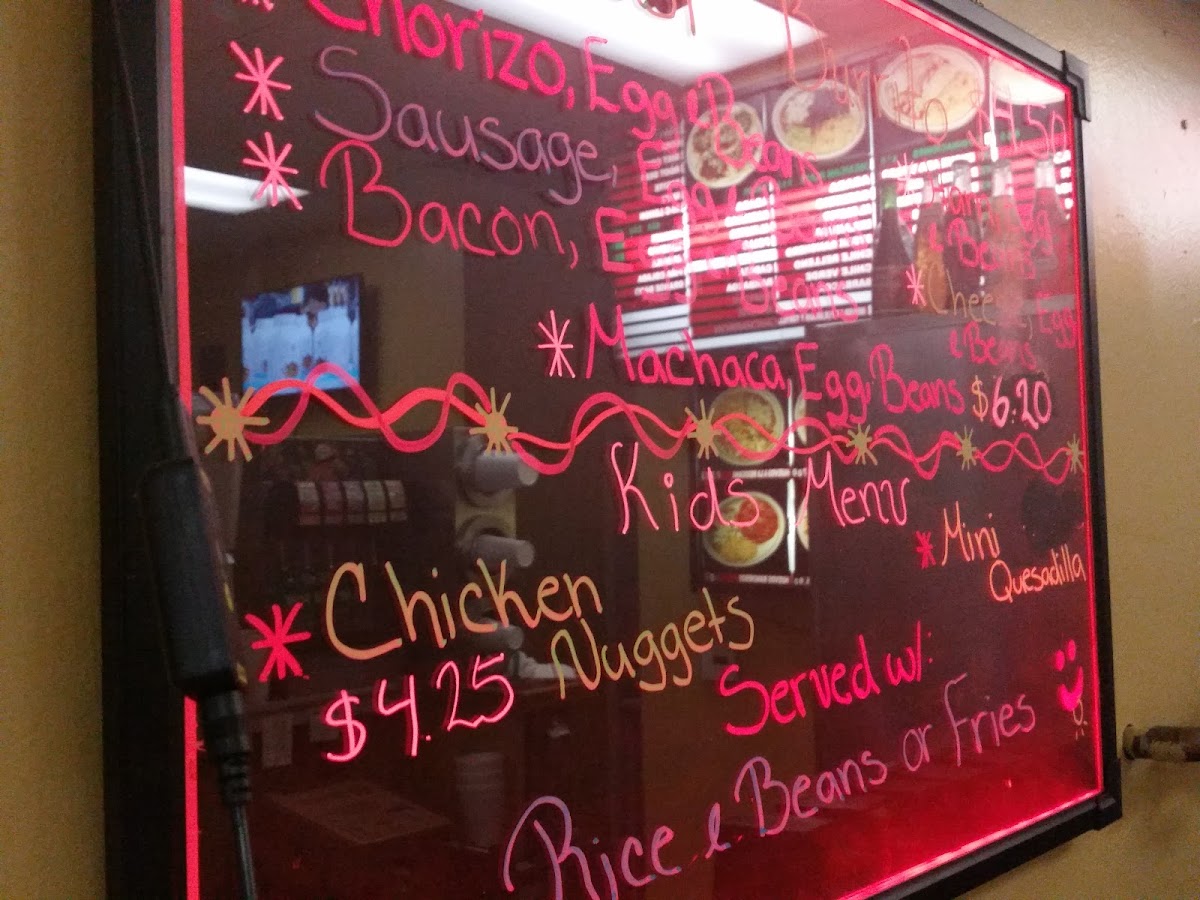 Burrito $4.50
* Chorizo, Egg & Beans
* Sausage, Egg & Beans
* Bacon, Egg & Beans
* Ham, Egg
& Beans
* Cheese, Egg
& Beans
* Machaca, Egg, Beans $6.20
Kids Menu
* Chicken
Nuggets
$4.25
* Mini
Quesadilla
Served w/:
Rice & Beans or Fries